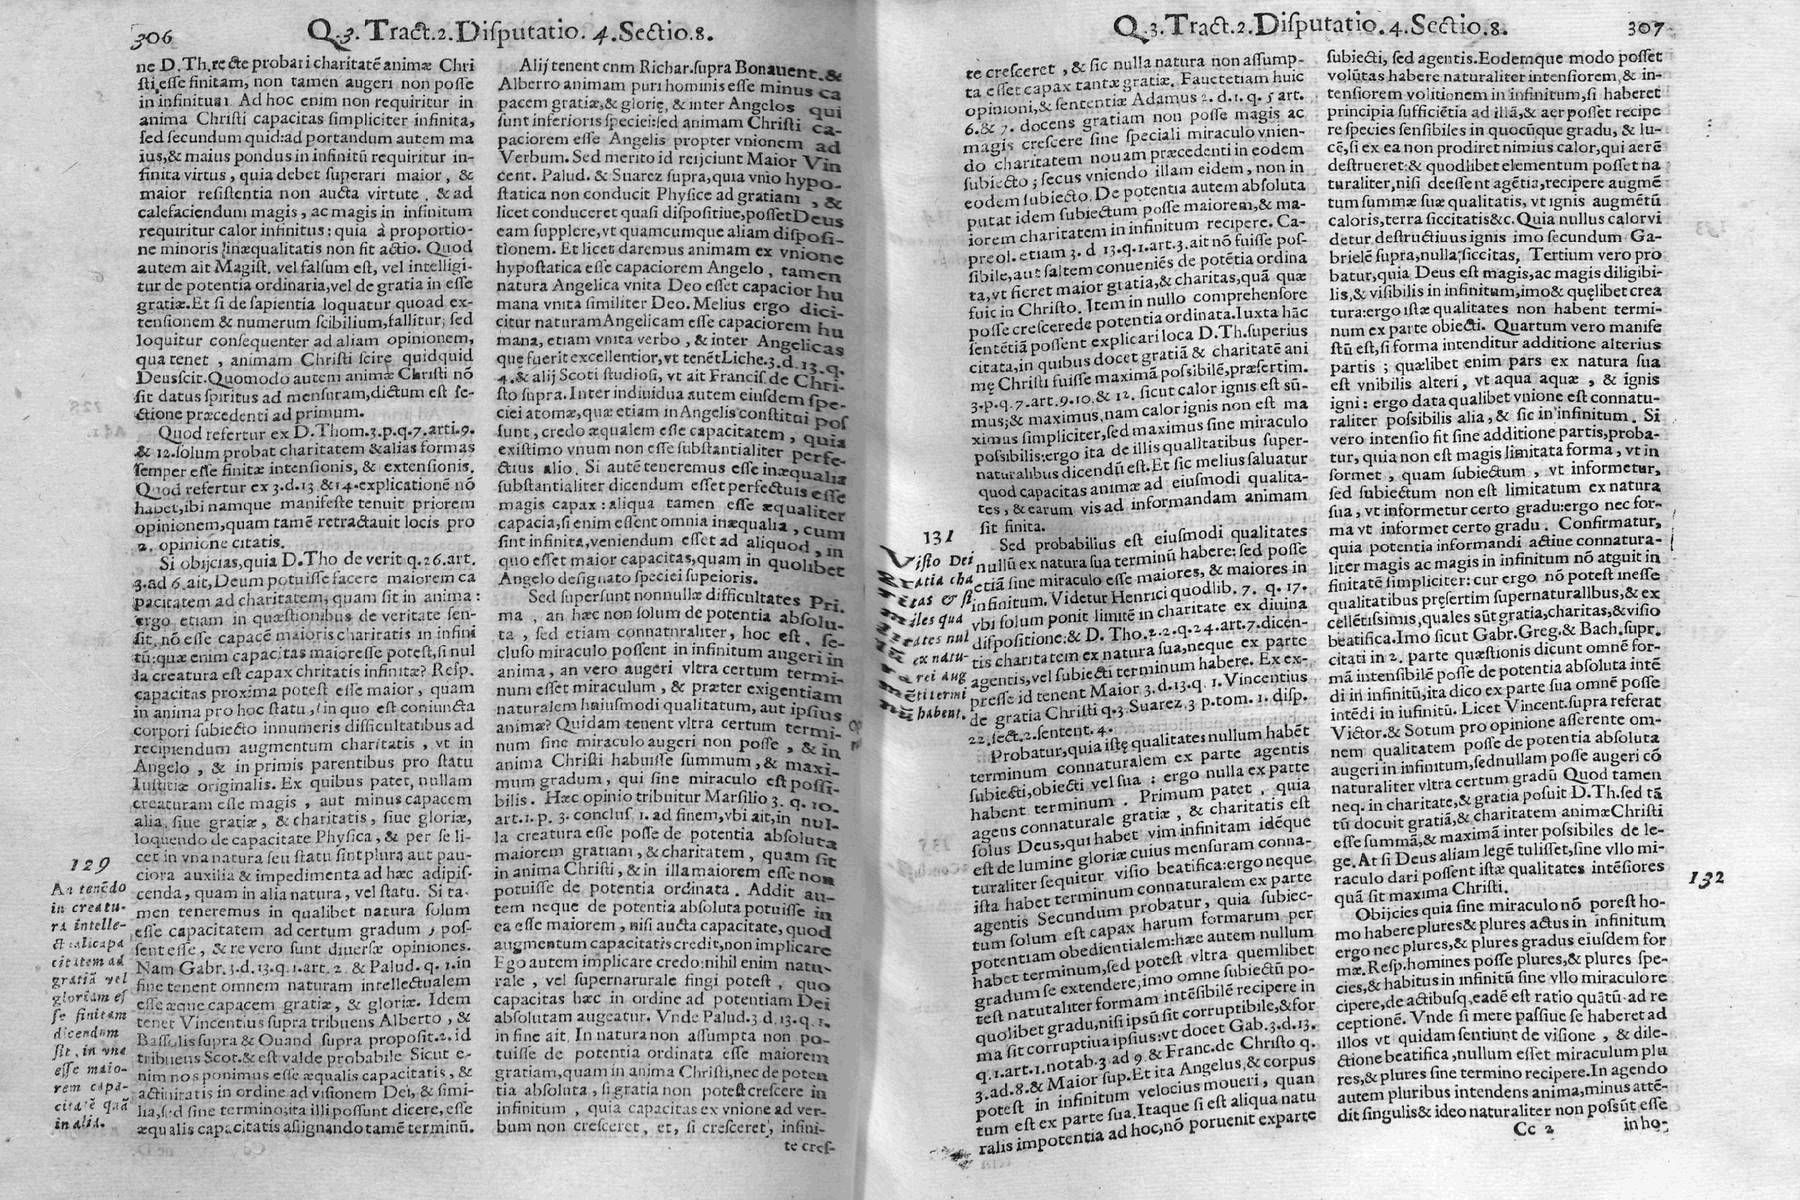 306
Q.3.Tract.2.Disputatio.4.Sectio.8.
ne D.Th.recte probari charitatē animæ Chri
sti,esse finitam, non tamen augeri non posse
in infinitum. Ad hoc enim non requiritur in
anima Christi capacitas simpliciter infinita,
sed secundum quid:ad portandum autem ma
ius,& maius pondus in infinitū requiritur in-
finita virtus, quia debet superari maior, &
maior resistentia non aucta virtute, & ad
calefaciendum magis, ac magis in infinitum
requiritur calor infinitus: quia à proportio-
ne minoris inæqualitatis non fit actio. Quod
autem ait Magist. vel falsum est, vel intelligi-
tur de potentia ordinaria,vel de gratia in esse
gratiæ.Et si de sapientia loquatur quoad ex-
tensionem & numerum scibilium,fallitur; sed
loquitur consequenter ad aliam opinionem,
qua tenet, animam Christi scire quidquid
Deus scit.Quomodo autem animæ Christi nō
sit datus spiritus ad mensuram,dictum est se-
ctione præcedenti ad primum.
Quod refertur ex D.Thom.3.p.q.7.arti.9.
& 12.solum probat charitatem &alias formas
semper esse finitæ intensionis, & extensionis,
Quod refertur ex 3.d.13 &14.explicationē nō
habet,ibi namque manifeste tenuit priorem
opinionem,quam tamē retractauit locis pro
2. opinione citatis.
Si obijcias,quia D.Tho de verit q.26.art.
3.ad 6.ait,Deum potuisse facere maiorem ca
pacitatem ad charitatem, quam sit in anima:
ergo etiam in quæstionibus de veritate sen-
sit, nō esse capacē maioris charitatis in infini
tū:quæ enim capacitas maioresse potest,si nul
la creatura est capax chritatis infinitæ? Resp.
capacitas proxima potest esse maior, quam
in anima pro hoc statu, in quo est coniuncta
corpori subiecto innumeris difficultatibus ad
recipiendum augmentum charitatis, vt in
Angelo, & in primis parentibus pro statu
Iustitiæ originalis. Ex quibus patet, nullam
creaturam esse magis, aut minus capacem
alia, siue gratiæ, & charitatis, siue gloriæ,
loquendo de capacitate Physica, & per se li-
cet in vna natura seu statu sint plura aut pau-
ciora auxilia & impedimenta ad hæc adipis-
cenda, quam in alia natura, vel statu. Si ta-
men teneremus in qualibet natura solum
esse capacitatem ad certum gradum, pos-
sent esse, & re vero sunt diuersæ opiniones.
Nam Gabr.3.d.13.q.1.art.2. & Palud. q.1.in
fine tenent omnem naturam intellectualem
esse æque capacem gratiæ, & gloriæ. Idem
tenet Vincentius supra tribuens Alberto, &
Bassolis supra & Ouand supra proposit.2. id
tribuens Scot.& est valde probabile Sicut e-
nim nos ponimus esse æqualis capacitatis, &
actiuitatis in ordine ad visionem Dei, & simi-
lia,sed sine termino;ita illi possunt dicere, esse
æqualis capacitatis assignando tamē terminū.
129
An tenēdo
in creatu-
ra intelle-
citatem ad
gratiā vel
gloriam es
se finitam
dicendum
sit, in vna
esse maio-
rem capa-
citatē quā
in alia.
Alij tenent cnm Richar.supra Bonauent.&
Alberro animam puri hominis esse minus ca
pacem gratiæ,& glorię, & inter Angelos qui
sunt inferioris speciei:sed animam Christi ca-
paciorem esse Angelis propter vnionem ad
Verbum. Sed merito id reijciunt Maior Vin
cent. Palud. & Suarez supra,quia vnio hypo-
statica non conducit Physice ad gratiam, &
licet conduceret quasi dispositiue,posset Deus
eam supplere,vt quamcumque aliam disposi-
tionem. Et licet daremus animam ex vnione
hypostatica esse capaciorem Angelo, tamen
natura Angelica vnita Deo esset capacior hu
mana vnita similiter Deo. Melius ergo dici-
citur naturam Angelicam esse capaciorem hu
mana, etiam vnita verbo, & inter Angelicas
que fuerit excellentior,vt tenēt Liche.3.d.13.q.
4.& alij Scoti studiosi, vt ait Francis.de Chri-
sto supra. Inter indiuidua autem eiusdem spe-
ciei atomæ,quæ etiam in Angelis constitui pos
sunt, credo æqualem esse capacitatem, quia
existimo vnum non esse substantialiter perfe-
ctius alio. Si autē teneremus esse inæqualia
substantialiter dicendum esset perfectuis esse
magis capax: aliqua tamen esse æqualiter
capacia,si enim essent omnia inæqualia, cum
sint infinita,veniendum esset ad aliquod, in
quo esset maior capacitas,quam in quolibet
Angelo designato speciei supeioris.
Sed supersunt nonnullæ difficultates Pri-
ma, an hæc non solum de potentia absolu-
ta, sed etiam connatnraliter, hoc est, se-
cluso miraculo possent in infinitum augeri in
anima, an vero augeri vltra certum termi-
num esset miraculum, & præter exigentiam
naturalem huiusmodi qualitatum, aut ipsius
animæ? Quidam tenent vltra certum termi-
num sine miraculo augeri non posse, & in
anima Christi habuisse summum, & maxi-
mum gradum, qui sine miraculo est possi-
bilis. Hæc opinio tribuitur Marsilio 3. q.10.
art.1.p.3. conclus.1. ad finem,vbi ait,in nul-
la creatura esse posse de potentia absoluta
maiorem gratiam, & charitatem, quam sit
in anima Christi, & in illa maiorem esse non
potuisse de potentia ordinata. Addit au-
tem neque de potentia absoluta potuisse in
ea esse maiorem, nisi aucta capacitate, quod
augmentum capacitatis credit,non implicare
Ego autem implicare credo:nihil enim natu-
rale, vel supernarurale fingi potest, quo
capacitas hæc in ordine ad potentiam Dei
absolutam augeatur. Vnde Palud.3 d.13.q.1.
in fine ait. In natura non assumpta non po-
tuisse de potentia ordinata esse maiorem
gratiam,quam in anima Christi,nec de poten
tia absoluta, si gratia non potest crescere in
infinitum, quia capacitas ex vnione ad ver-
bum non cresceret, et, si cresceret, infini-
te cres-
Q.3.Tract.2.Disputatio.4.Sectio.8.
307
te cresceret, & sic nulla natura non assump-
ta esset capax tantæ gratiæ. Fauet etiam huic
opinioni,& sententiæ Adamus 2. d.1. q. 5 art.
6.& 7. docens gratiam non posse magis ac
magis crescere sine speciali miraculo vnien-
do charitatem nouam præcedenti in eodem
subiecto; secus vniendo illam eidem, non in
eodem subiecto. De potentia autem absoluta
putat idem subiectum posse maiorem,& ma-
iorem charitatem in infinitum recipere. Ca-
preol. etiam 3. d 13.q.1.art.3.ait nō fuisse pos-
sibile,aut saltem conueniēs de potētia ordina
ta,vt fieret maior gratia,& charitas,quā quæ
fuic in Christo. Item in nullo comprehensore
posse crescere de potentia ordinata.Iuxta hāc
sentētiā possent explicari loca D.Th.superius
citata,in quibus docet gratiā & charitatē ani
mę Christi fuisse maximā possibilē,præsertim.
3.p.q.7.art.9.10.& 12. sicut calor ignis est sū-
mus;& maximus,nam calor ignis non est ma
ximus simpliciter,sed maximus sine miraculo
possibilis:ergo ita de illis quallitatibus super-
naturalibus dicendū est.Et sic melius saluatur
quod capacitas animæ ad eiusmodi qualita-
tes, & earum vis ad informandam animam
sit finita.
Sed probabilius est eiusmodi qualitates
nullū ex natura sua terminū habere: sed posse
etiā sine miraculo esse maiores, & maiores in
infinitum. Videtur Henrici quodlib. 7. q. 17.
vbi solum ponit limitē in charitate ex diuina
dispositione:& D. Tho.2.2.q.24.art.7.dicen-
tis charitatem ex natura sua,neque ex parte
agentis,vel subiecti terminum habere. Ex ex-
presse id tenent Maior 3.d.13.q. 1. Vincentius
de gratia Christi q.3 Suarez 3 p.tom. 1. disp.
22.sect.2.sentent.4.
Probatur,quia istę qualitates nullum habēt
terminum connaturalem ex parte agentis
subiecti,obiecti vel sua: ergo nulla ex parte
habent terminum. Primum patet, quia
agens connaturale gratiæ, & charitatis est
solus Deus,qui habet vim infinitam idēque
est de lumine gloriæ cuius mensuram conna-
turaliter sequitur visio beatifica:ergo neque
ista habet terminum connaturalem ex parte
agentis Secundum probatur, quia subiec-
tum solum est capax harum formarum per
potentiam obedientialem:hæc autem nullum
habet terminum,sed potest vltra quemlibet
gradum se extendere;imo omne subiectū po-
test natutaliter formam intēsibilē recipere in
quolibet gradu,nisi ipsū sit corruptibile,&for
ma sit corruptiua ipsius:vt docet Gab.3.d.13.
q.1.art.1.notab.3 ad 9 & Franc.de Christo q.
3.ad.8.& Maior sup.Et ita Angelus,& corpus
potest in infinitum velocius moueri, quan
tum est ex parte sua.Itaque si est aliqua natu
ralis impotentia ad hoc,nō poruenit exparte
131
Visio Dei
gratia cha
ritas & si
miles qua
litates nul
ex natu-
rei aug
mēti termi
nū habent.
subiecti, sed agentis.Eodemque modo posset
volūtas habere naturaliter intensiorem,& in-
tensiorem volitionem in infinitum,si haberet
principia sufficiētia ad illā,& aer posset recipe
re species sensibiles in quocūque gradu, & lu-
cē,si ex ea non prodiret nimius calor,qui aerē
destrueret:& quodlibet elementum posset na
turaliter,nisi deessent agētia,recipere augmē
tum summæ suæ qualitatis, vt ignis augmētū
caloris,terra siccitatis&c.Quia nullus calor vi
detur destructiuus ignis imo secundum Ga-
brielē supra,nulla siccitas, Tertium vero pro
batur,quia Deus est magis,ac magis diligibi-
lis,& visibilis in infinitum,imo& quęlibet crea
tura:ergo istæ qualitates non habent termi-
num ex parte obiecti. Quartum vero manife
stū est,si forma intenditur additione alterius
partis; quælibet enim pars ex natura sua
est vnibilis alteri, vt aqua aquæ, & ignis
igni: ergo data qualibet vnione est connatu-
raliter possibilis alia, & sic in infinitum. Si
vero intensio fit sine additione partis,proba-
tur, quia non est magis limitata forma, vt in
formet, quam subiectum, vt informetur,
sed subiectum non est limitatum ex natura
sua, vt informetur certo gradu:ergo nec for-
ma vt informet certo gradu. Confirmatur,
quia potentia informandi actiue connatura-
liter magis ac magis in infinitum nō atguit in
finitatē simpliciter: cur ergo nō potest inesse
qualitatibus pręsertim supernaturallbus,& ex
cellētissimis,quales sūt gratia,charitas,&visio
beatifica.Imo sicut Gabr.Greg.& Bach.supr.
citati in 2. parte quæstionis dicunt omnē for-
mā intensibilē posse de potentia absoluta intē
di in infinitū,ita dico ex parte sua omnē posse
intēdi in iufinitū. Licet Vincent.supra referat
Victor.& Sotum pro opinione asserente om-
nem qualitatem posse de potentia absoluta
augeri in infinitum,sed nullam posse augeri cō
naturaliter vltra certum gradū Quod tamen
neq. in charitate,& gratia posuit D.Th.sed tā
tū docuit gratiā,& charitatem animæ Christi
esse summā,& maximā inter possibiles de le-
ge. At si Deus aliam legē tulisset,sine vllo mi-
raculo dari possent istæ qualitates intēsiores
quā sit maxima Christi.
Obijcies quia sine miraculo nō porest ho-
mo habere plures& plures actus in infinitum
ergo nec plures,& plures gradus eiusdem for
mæ. Resp.homines posse plures,& plures spe-
cies,& habitus in infinitū sine vllo miraculo re
cipere,de actibusq, eadē est ratio quātū ad re
ceptionē. Vnde si mere passiue se haberet ad
illos vt quidam sentiunt de visione, & dile-
ctione beatifica,nullum esset miraculum plu
res,& plures sine termino recipere.In agendo
autem pluribus intendens anima,minus attē-
dit singulis& ideo naturaliter non possūt esse
132
Cc 2
in ho-